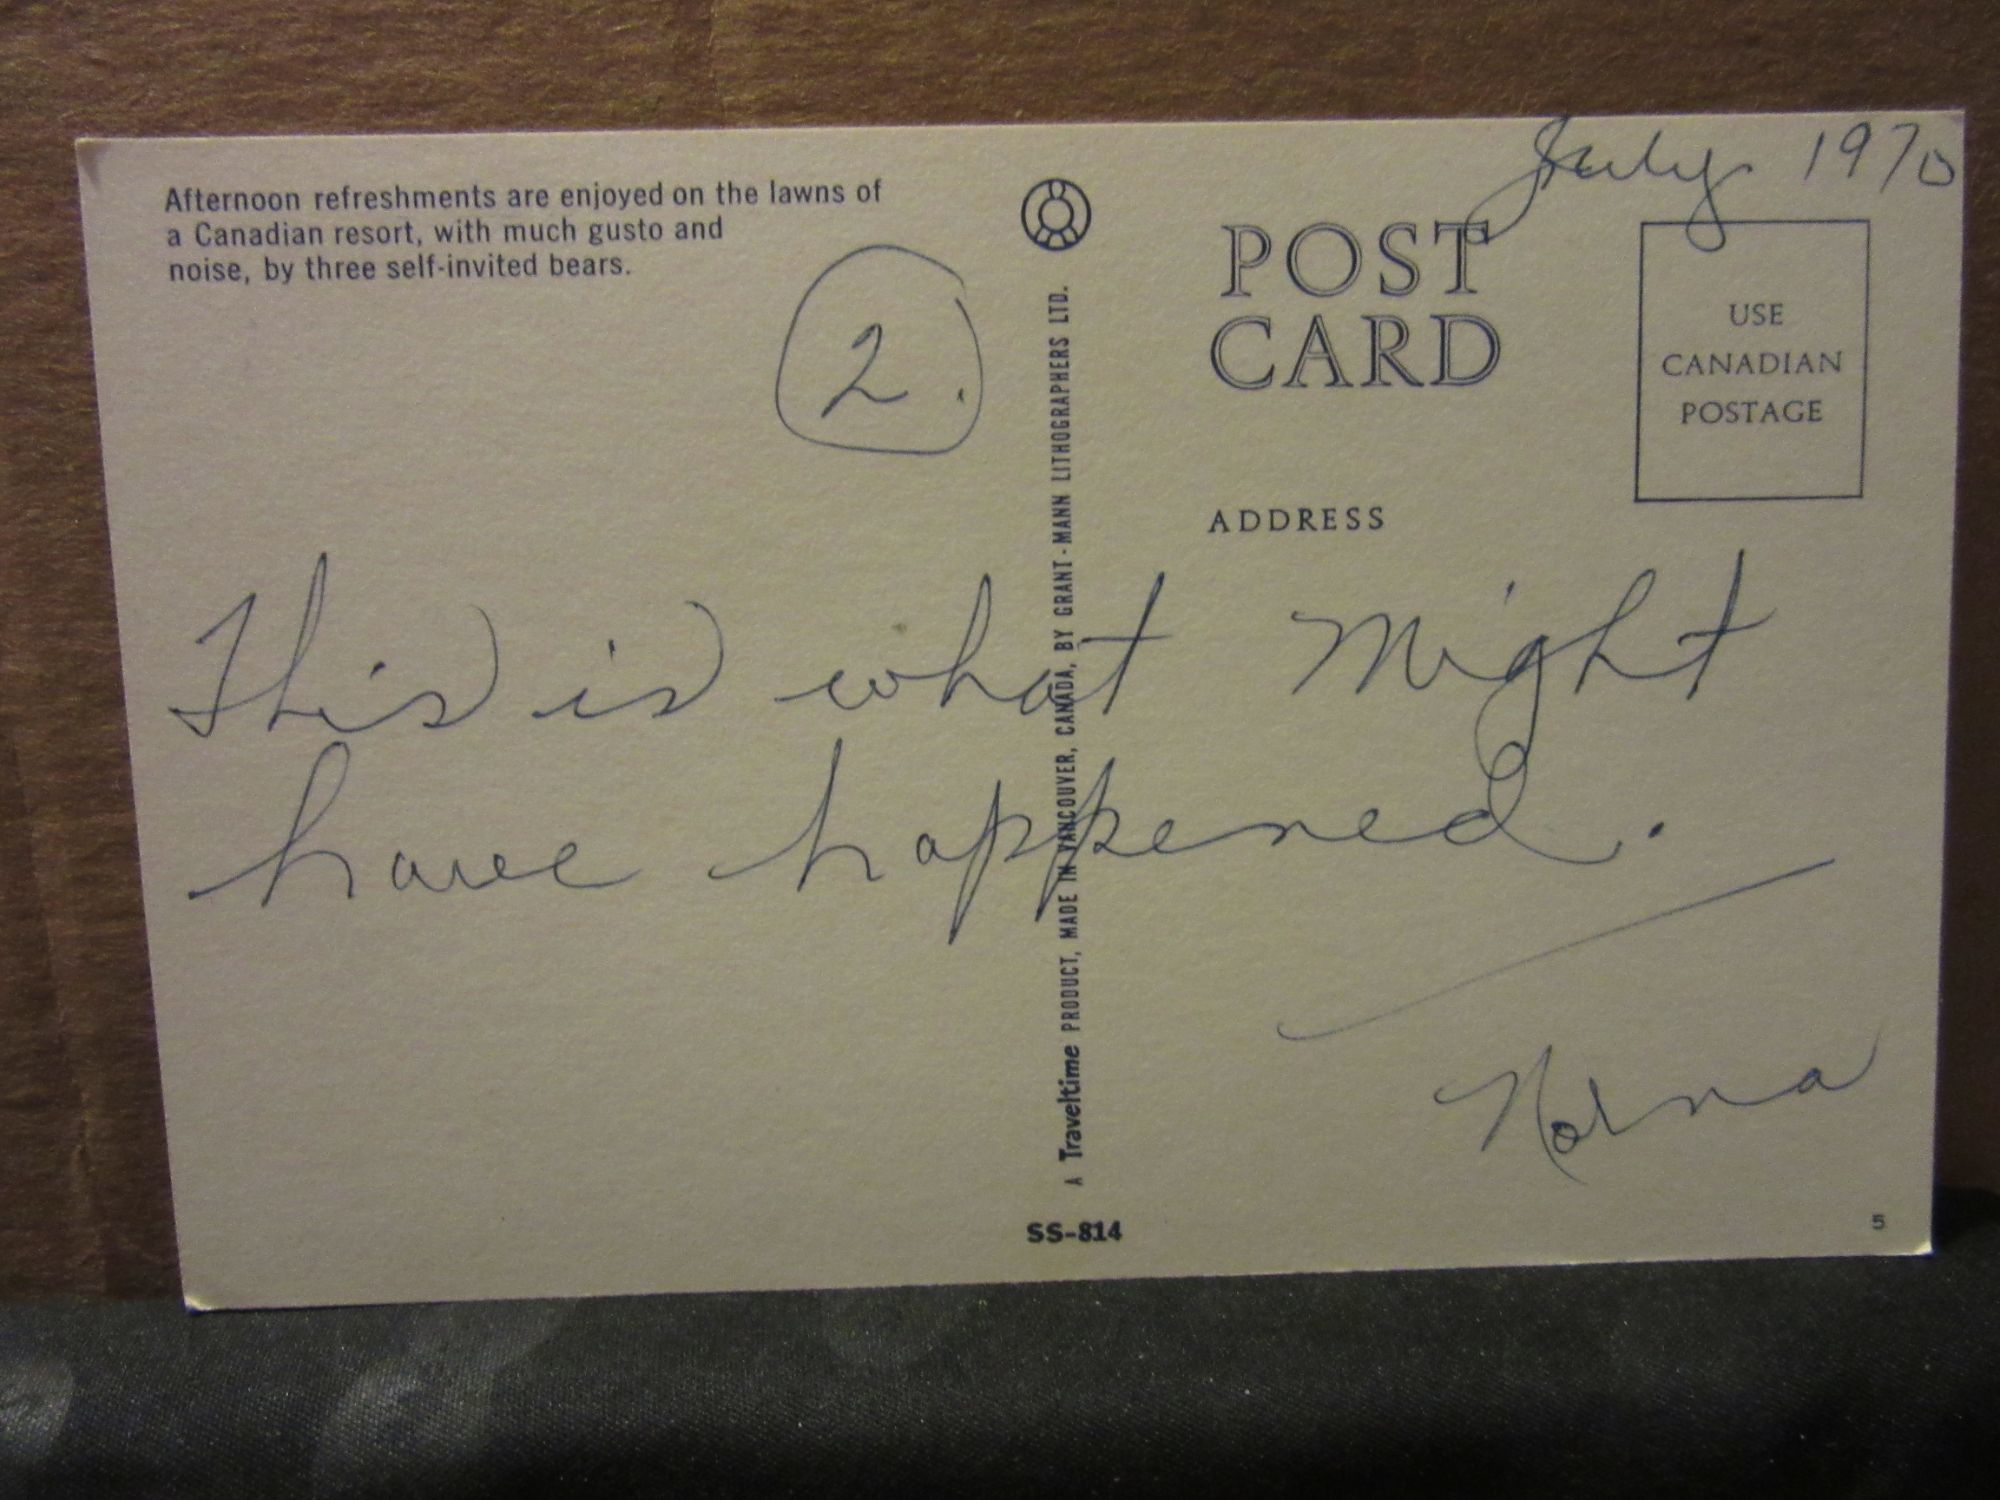 July 1970
Afternoon refreshments are enjoyed on the lawns of
a Canadian resort, with much gusto and
noise, by three self-invited bears.
2.
POST
CARD
USE
CANADIAN
POSTAGE
ADDRESS
This is what might
have happened.
Norma
A Traveltime PRODUCT, MADE IN VANCOUVER, CANADA, BY GRANT-MANN LITHOGRAPHERS LTD.
SS-814
5